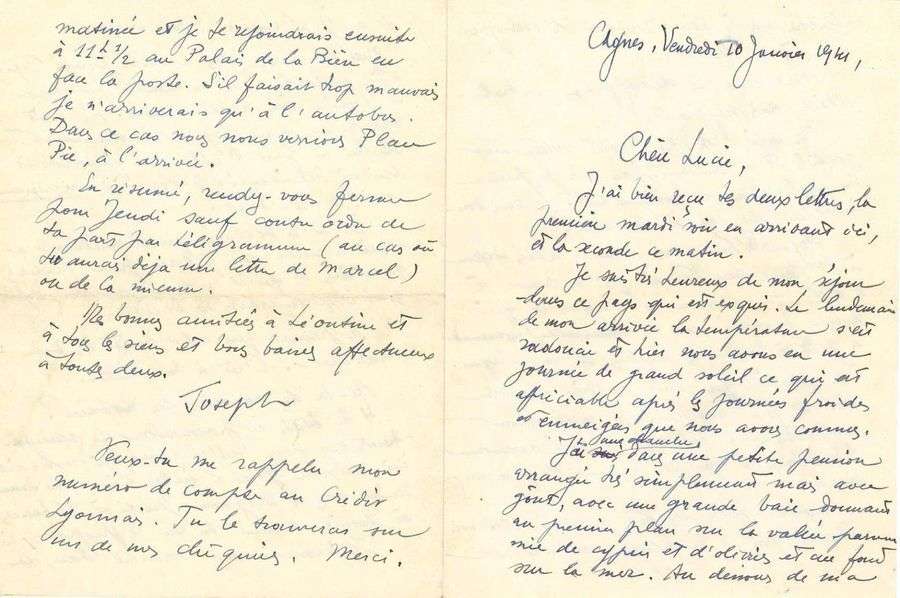 Cagnes, Vendredi 10 Janvier 1941,
Chère Lucie,
J'ai bien reçu tes deux lettres, la
première mardi soir en arrivant ici,
et la seconde ce matin.
Je suis très heureux de mon séjour
dans ce pays qui est exquis. Le lendemain
de mon arrivée la température s'est
radoucie et hier nous avons eu une
journée de grand soleil ce qui est
appréciable après les journées froides
et enneigées que nous avons connues.
J'ai une chambre dans une petite pension
arrangée très simplement mais avec
goût, avec une grande baie donnant
au premier plan sur la vallée parse
mée de cyprès et d'oliviers et au fond
sur la mer. Au dessous de ma
matinée et je te rejoindrais ensuite
à 11h 1/2 au Palais de la Bière en
face la poste. S'il faisait trop mauvais
je n'arriverais qu'à l'autobus.
Dans ce cas nous nous verrions Place
Pie, à l'arrivée.
En résumé, rendez-vous ferme
pour Jeudi sauf contre ordre de
ta part par télégramme (au cas où
tu aurais déjà une lettre de Marcel)
ou de la mienne.
Mes bonnes amitiés à Léontine et
à tous les siens et bons baisers affectueux
à toutes deux.
Joseph
Veux-tu me rappeler mon
numéro de compte au Crédit
Lyonnais. Tu le trouveras sur
un de mes chéquiers. Merci.